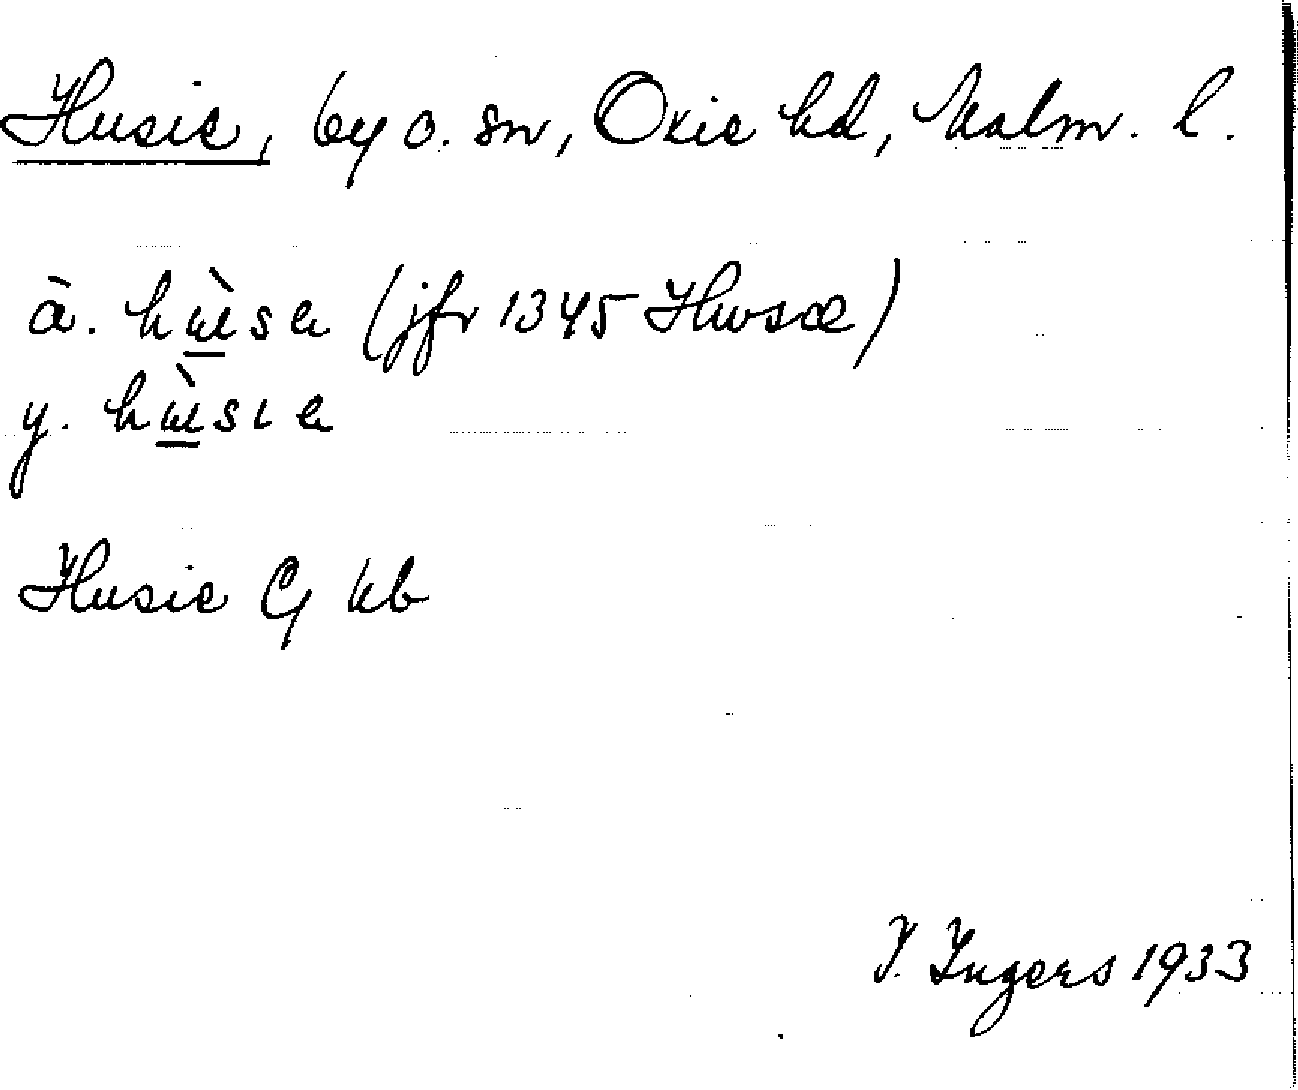 Husie, by o. sn, Oxie hd, Malm. l.
ä. hɯ̀sa (jfr 1345 Hwsæ)
y. hɯ̀sıa
Husie Gj kb
I. Ingers 1933